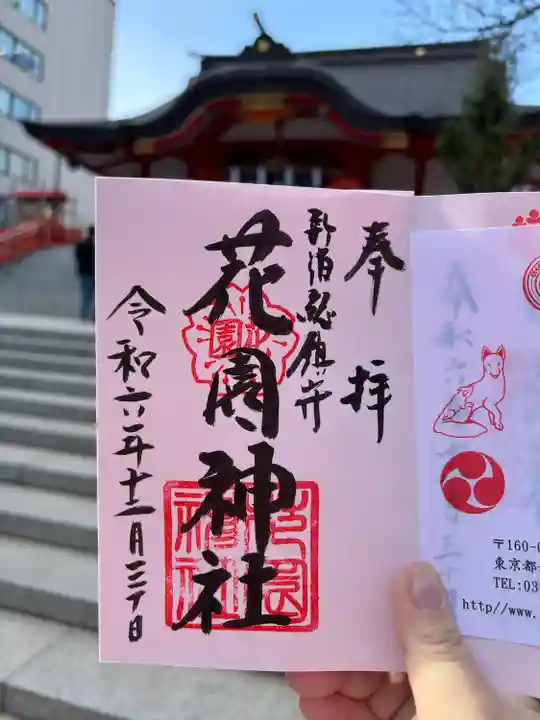 奉拝
新宿総鎮守
花園神社
令和六年十二月三十日
花園
花園神社
〒160-0
東京都
TEL:03
http//www.